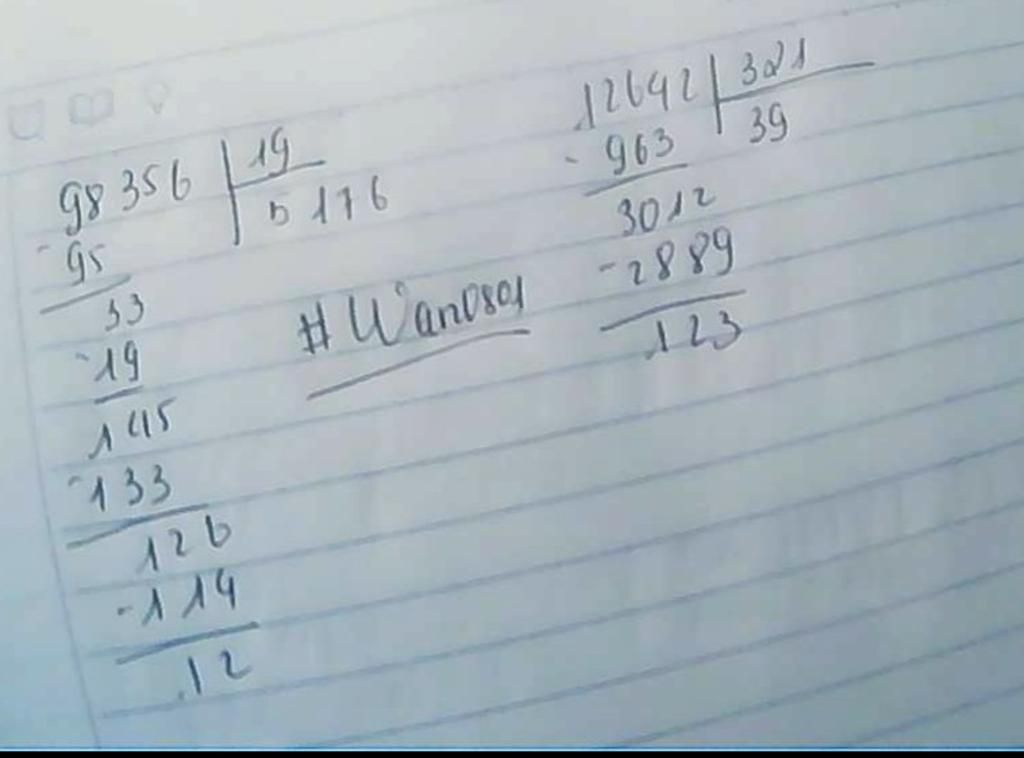 98356 | 19
5176
-95
33
-19
145
-133
126
-114
12
12642 | 321
39
-963
3012
-2889
123
#Wan0801